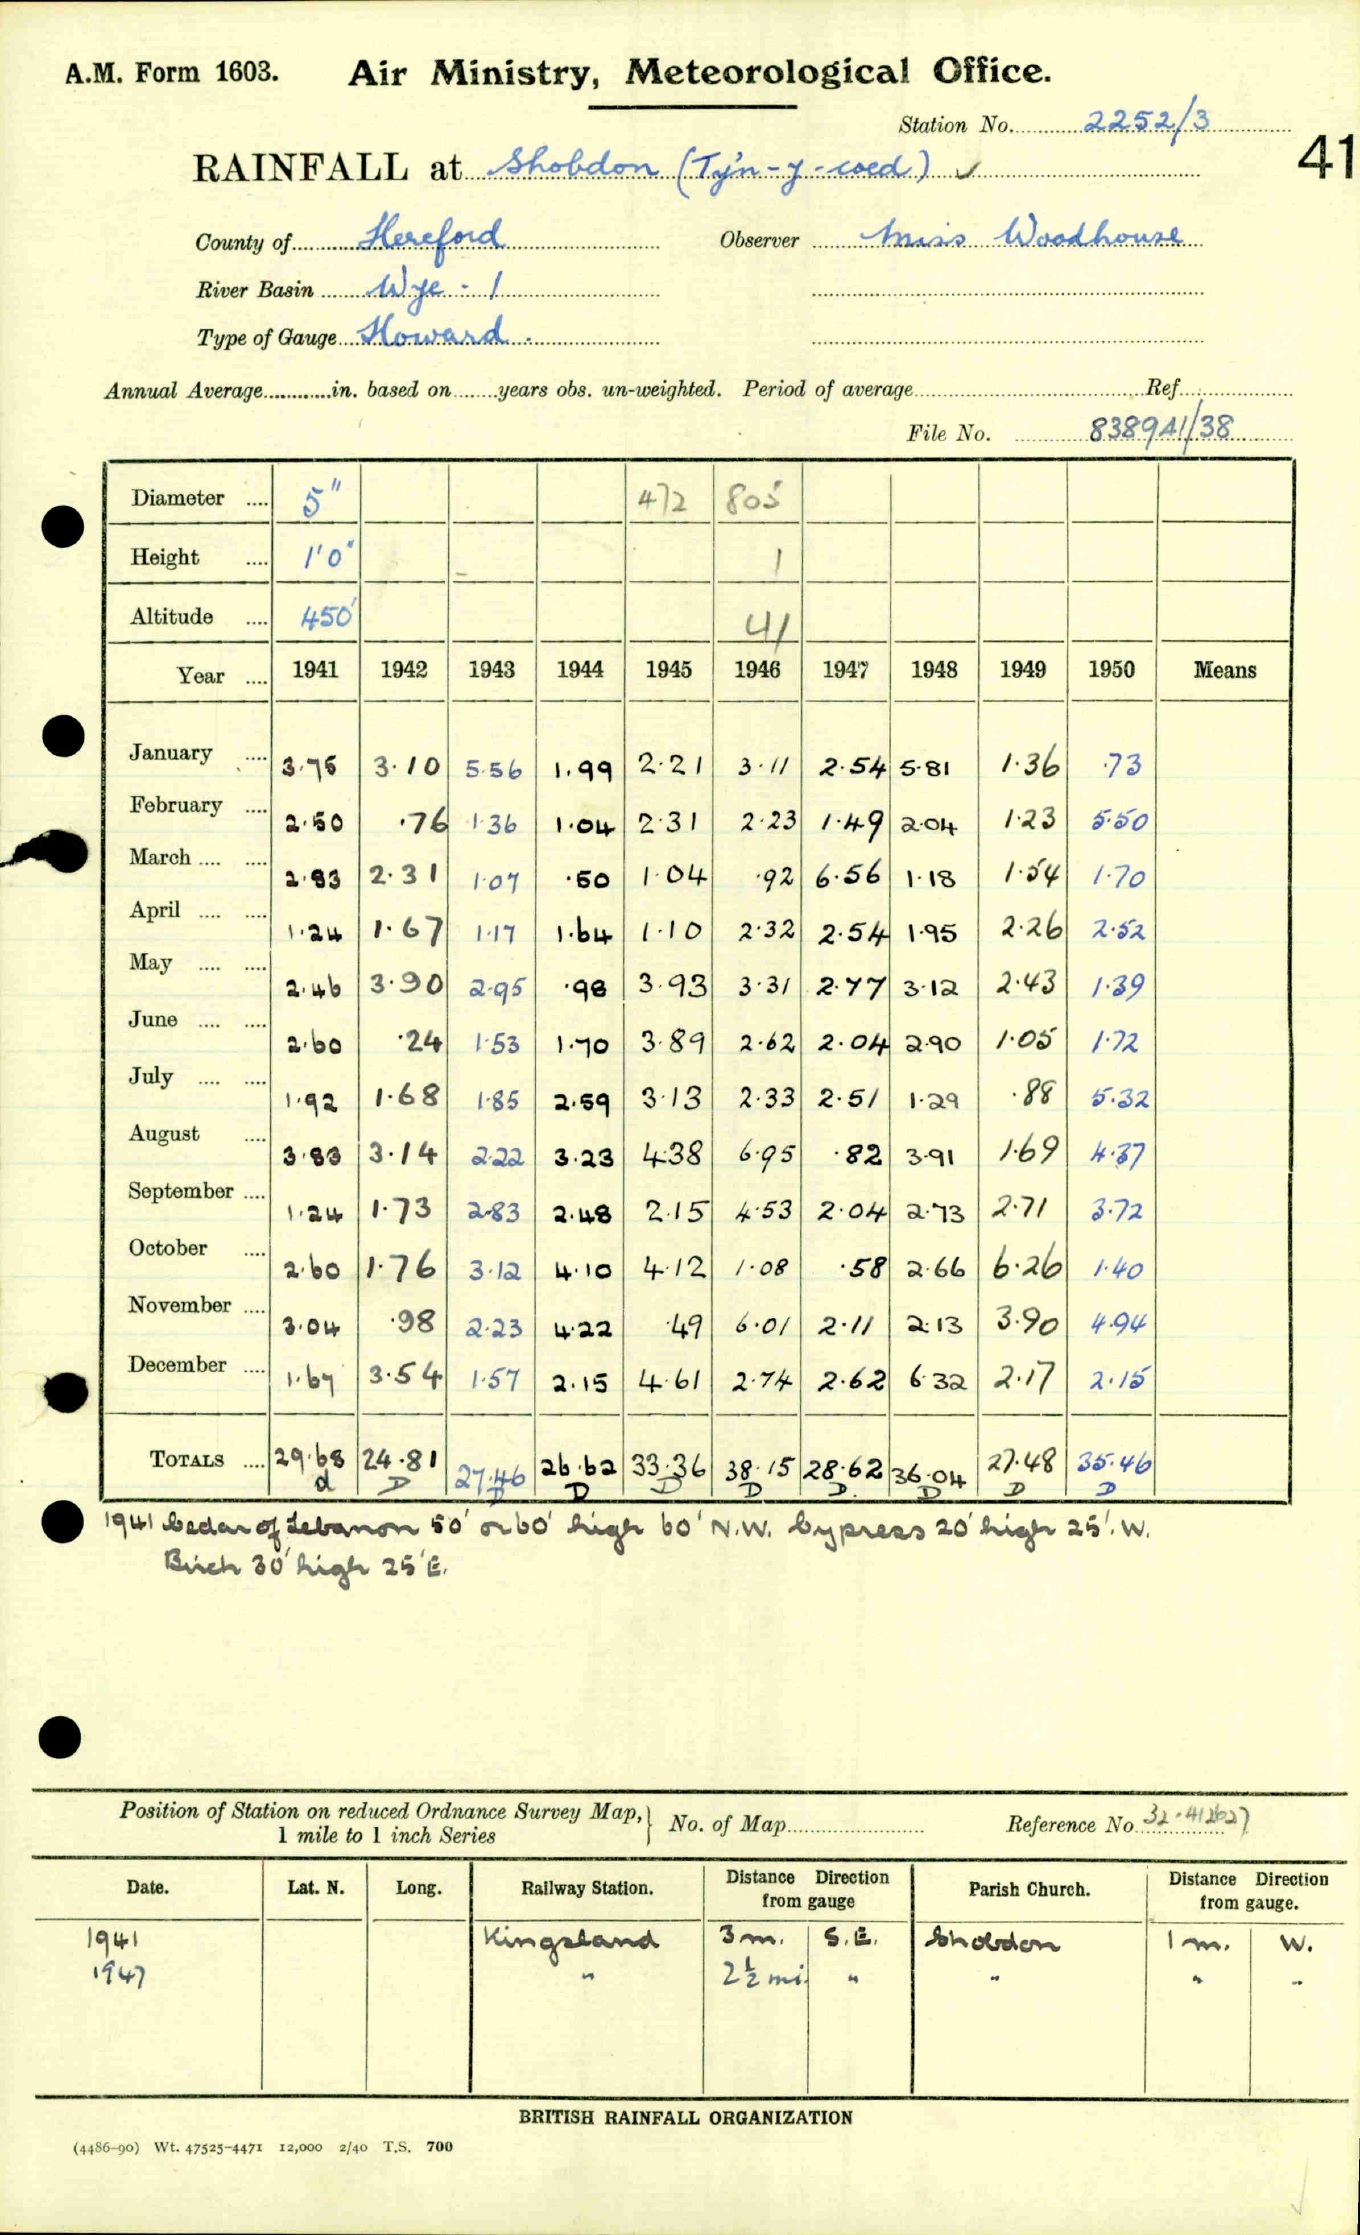 A.M. Form 1603. Air Ministry, Meteorological Office.
Station No. 2252/3
41
RAINFALL at Shobdon (Ty'n-y-coed) ✓
County of Hereford Observer Miss Woodhouse
River Basin Wye - 1
Type of Gauge Howard .
Annual Average............in. based on........years obs. un-weighted. Period of average............Ref............
File No. 838941/38
Diameter .... 5" 472 805
Height .... 1'0" 1
Altitude .... 450' 41
Year .... 1941 1942 1943 1944 1945 1946 1947 1948 1949 1950 Means
January .... 3.75 3.10 5.56 1.99 2.21 3.11 2.54 5.81 1.36 .73
February .... 2.50 .76 1.36 1.04 2.31 2.23 1.49 2.04 1.23 5.50
March .... .... 2.83 2.31 1.07 .50 1.04 .92 6.56 1.18 1.54 1.70
April .... .... 1.24 1.67 1.17 1.64 1.10 2.32 2.54 1.95 2.26 2.52
May .... .... 2.46 3.90 2.95 .98 3.93 3.31 2.77 3.12 2.43 1.39
June .... .... 2.60 .24 1.53 1.70 3.89 2.62 2.04 2.90 1.05 1.72
July .... .... 1.92 1.68 1.85 2.59 3.13 2.33 2.51 1.29 .88 5.32
August .... 3.83 3.14 2.22 3.23 4.38 6.95 .82 3.91 1.69 4.37
September .... 1.24 1.73 2.83 2.48 2.15 4.53 2.04 2.73 2.71 3.72
October .... 2.60 1.76 3.12 4.10 4.12 1.08 .58 2.66 6.26 1.40
November .... 3.04 .98 2.23 4.22 .49 6.01 2.11 2.13 3.90 4.94
December .... 1.67 3.54 1.57 2.15 4.61 2.74 2.62 6.32 2.17 2.15
TOTALS .... 29.68 24.81 27.46 26.62 33.36 38.15 28.62 36.04 27.48 35.46
d D D D D D D. D D D
1941 Cedar of Lebanon 50' or 60' high 60' N.W. Cypress 20' high 25'. W.
Birch 30' high 25' E.
Position of Station on reduced Ordnance Survey Map, } No. of Map............ Reference No. 32.412627
1 mile to 1 inch Series
Date. Lat. N. Long. Railway Station. Distance Direction from gauge Parish Church. Distance Direction from gauge.
1941 Kingsland 3 m. S.E. Shobdon 1 m. W.
1947 " 2½ mi. " " " "
BRITISH RAINFALL ORGANIZATION
(4486-90) Wt. 47525-4471 12,000 2/40 T.S. 700